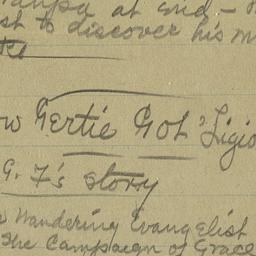 at end –
to discover his
Gertie Got 'Ligio
G. F's story
Wandering Evangelist
The Campaign of Grace